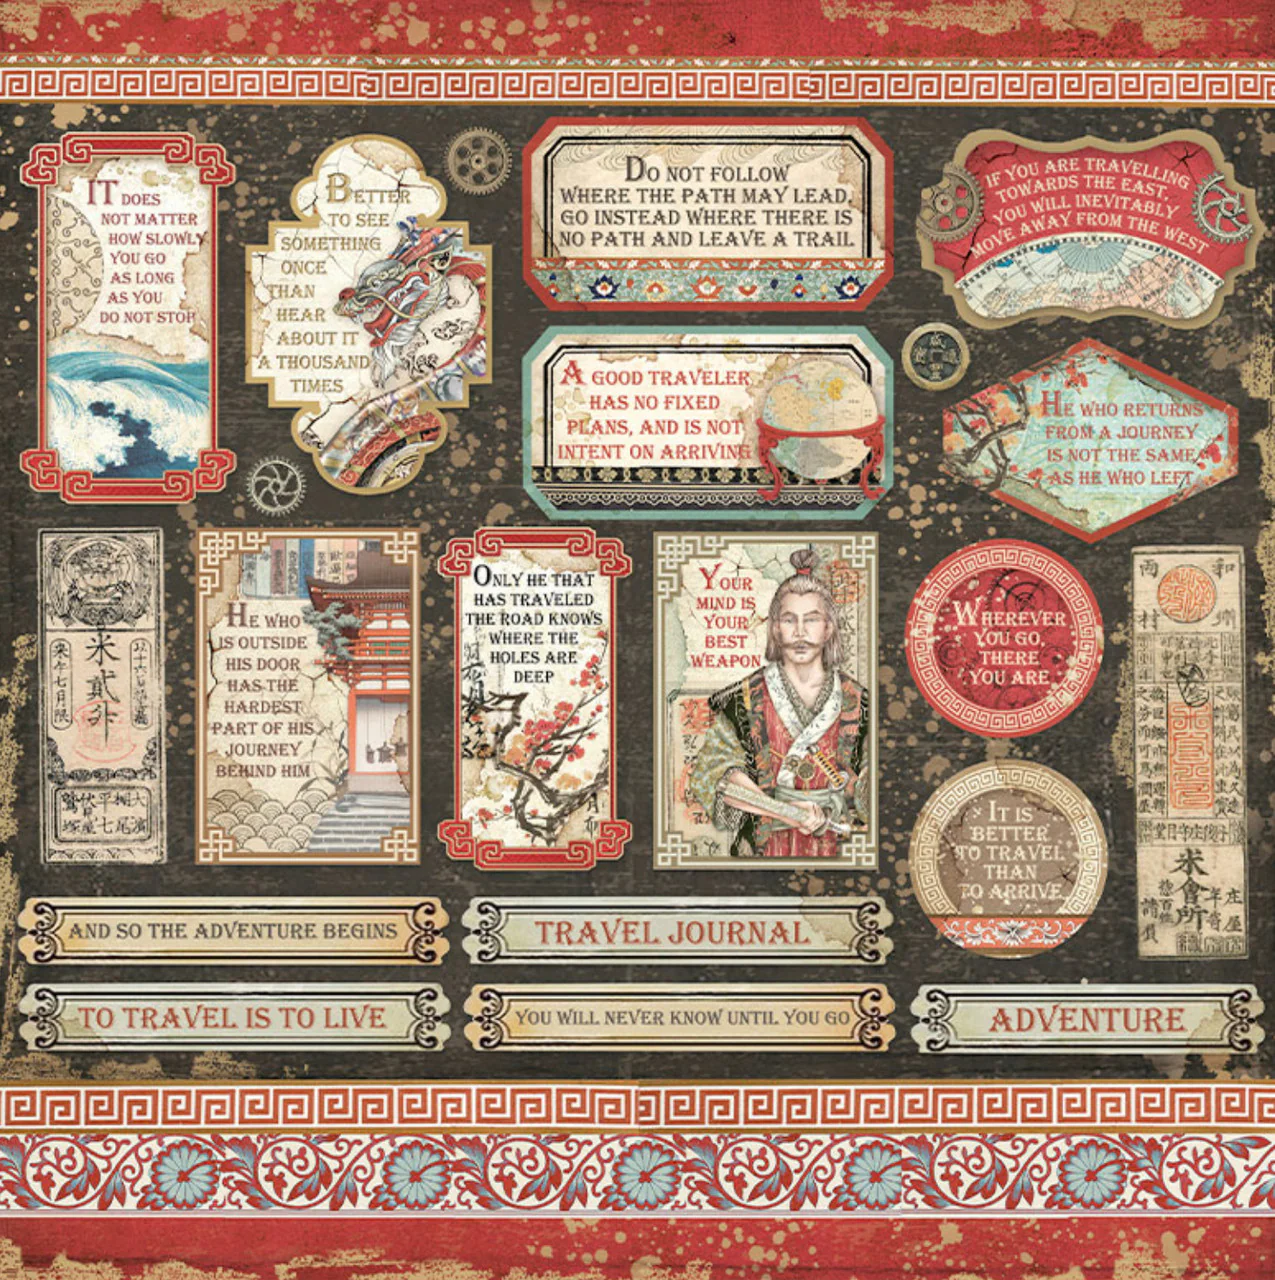 IT DOES
NOT MATTER
HOW SLOWLY
YOU GO
AS LONG
AS YOU
DO NOT STOP
BETTER
TO SEE
SOMETHING
ONCE
THAN
HEAR
ABOUT IT
A THOUSAND
TIMES
DO NOT FOLLOW
WHERE THE PATH MAY LEAD,
GO INSTEAD WHERE THERE IS
NO PATH AND LEAVE A TRAIL
IF YOU ARE TRAVELLING
TOWARDS THE EAST,
YOU WILL INEVITABLY
MOVE AWAY FROM THE WEST
A GOOD TRAVELER
HAS NO FIXED
PLANS, AND IS NOT
INTENT ON ARRIVING
HE WHO RETURNS
FROM A JOURNEY
IS NOT THE SAME
AS HE WHO LEFT
米
貳
HE WHO
IS OUTSIDE
HIS DOOR
HAS THE
HARDEST
PART OF HIS
JOURNEY
BEHIND HIM
ONLY HE THAT
HAS TRAVELED
THE ROAD KNOWS
WHERE THE
HOLES ARE
DEEP
YOUR
MIND IS
YOUR
BEST
WEAPON
WHEREVER
YOU GO,
THERE
YOU ARE
IT IS
BETTER
TO TRAVEL
THAN
TO ARRIVE
米會所
AND SO THE ADVENTURE BEGINS
TRAVEL JOURNAL
TO TRAVEL IS TO LIVE
YOU WILL NEVER KNOW UNTIL YOU GO
ADVENTURE